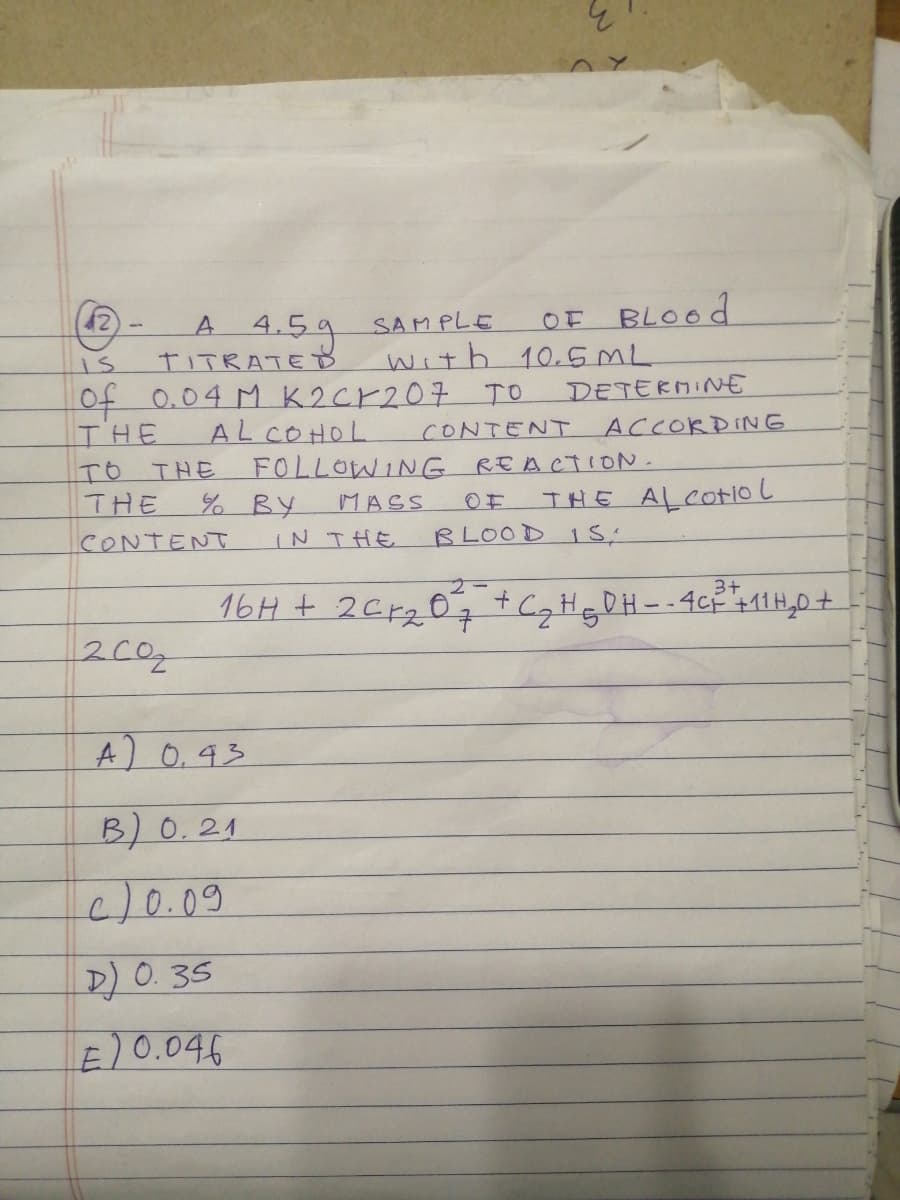 12 - A 4.5g SAMPLE OF BLOOd
IS TITRATED With 10.5 ML
Of 0.04 M K2Cr2O7 TO DETERMINE
THE ALCOHOL CONTENT ACCORDING
TO THE FOLLOWING REACTION.
THE % BY MASS OF THE ALCOHOL
CONTENT IN THE BLOOD IS:
16H + 2Cr₂O₇²⁻ + C₂H₅OH -- 4Cr³⁺ + 11H₂O +
2CO₂
A) 0.43
B) 0.21
C) 0.09
D) 0.35
E) 0.046